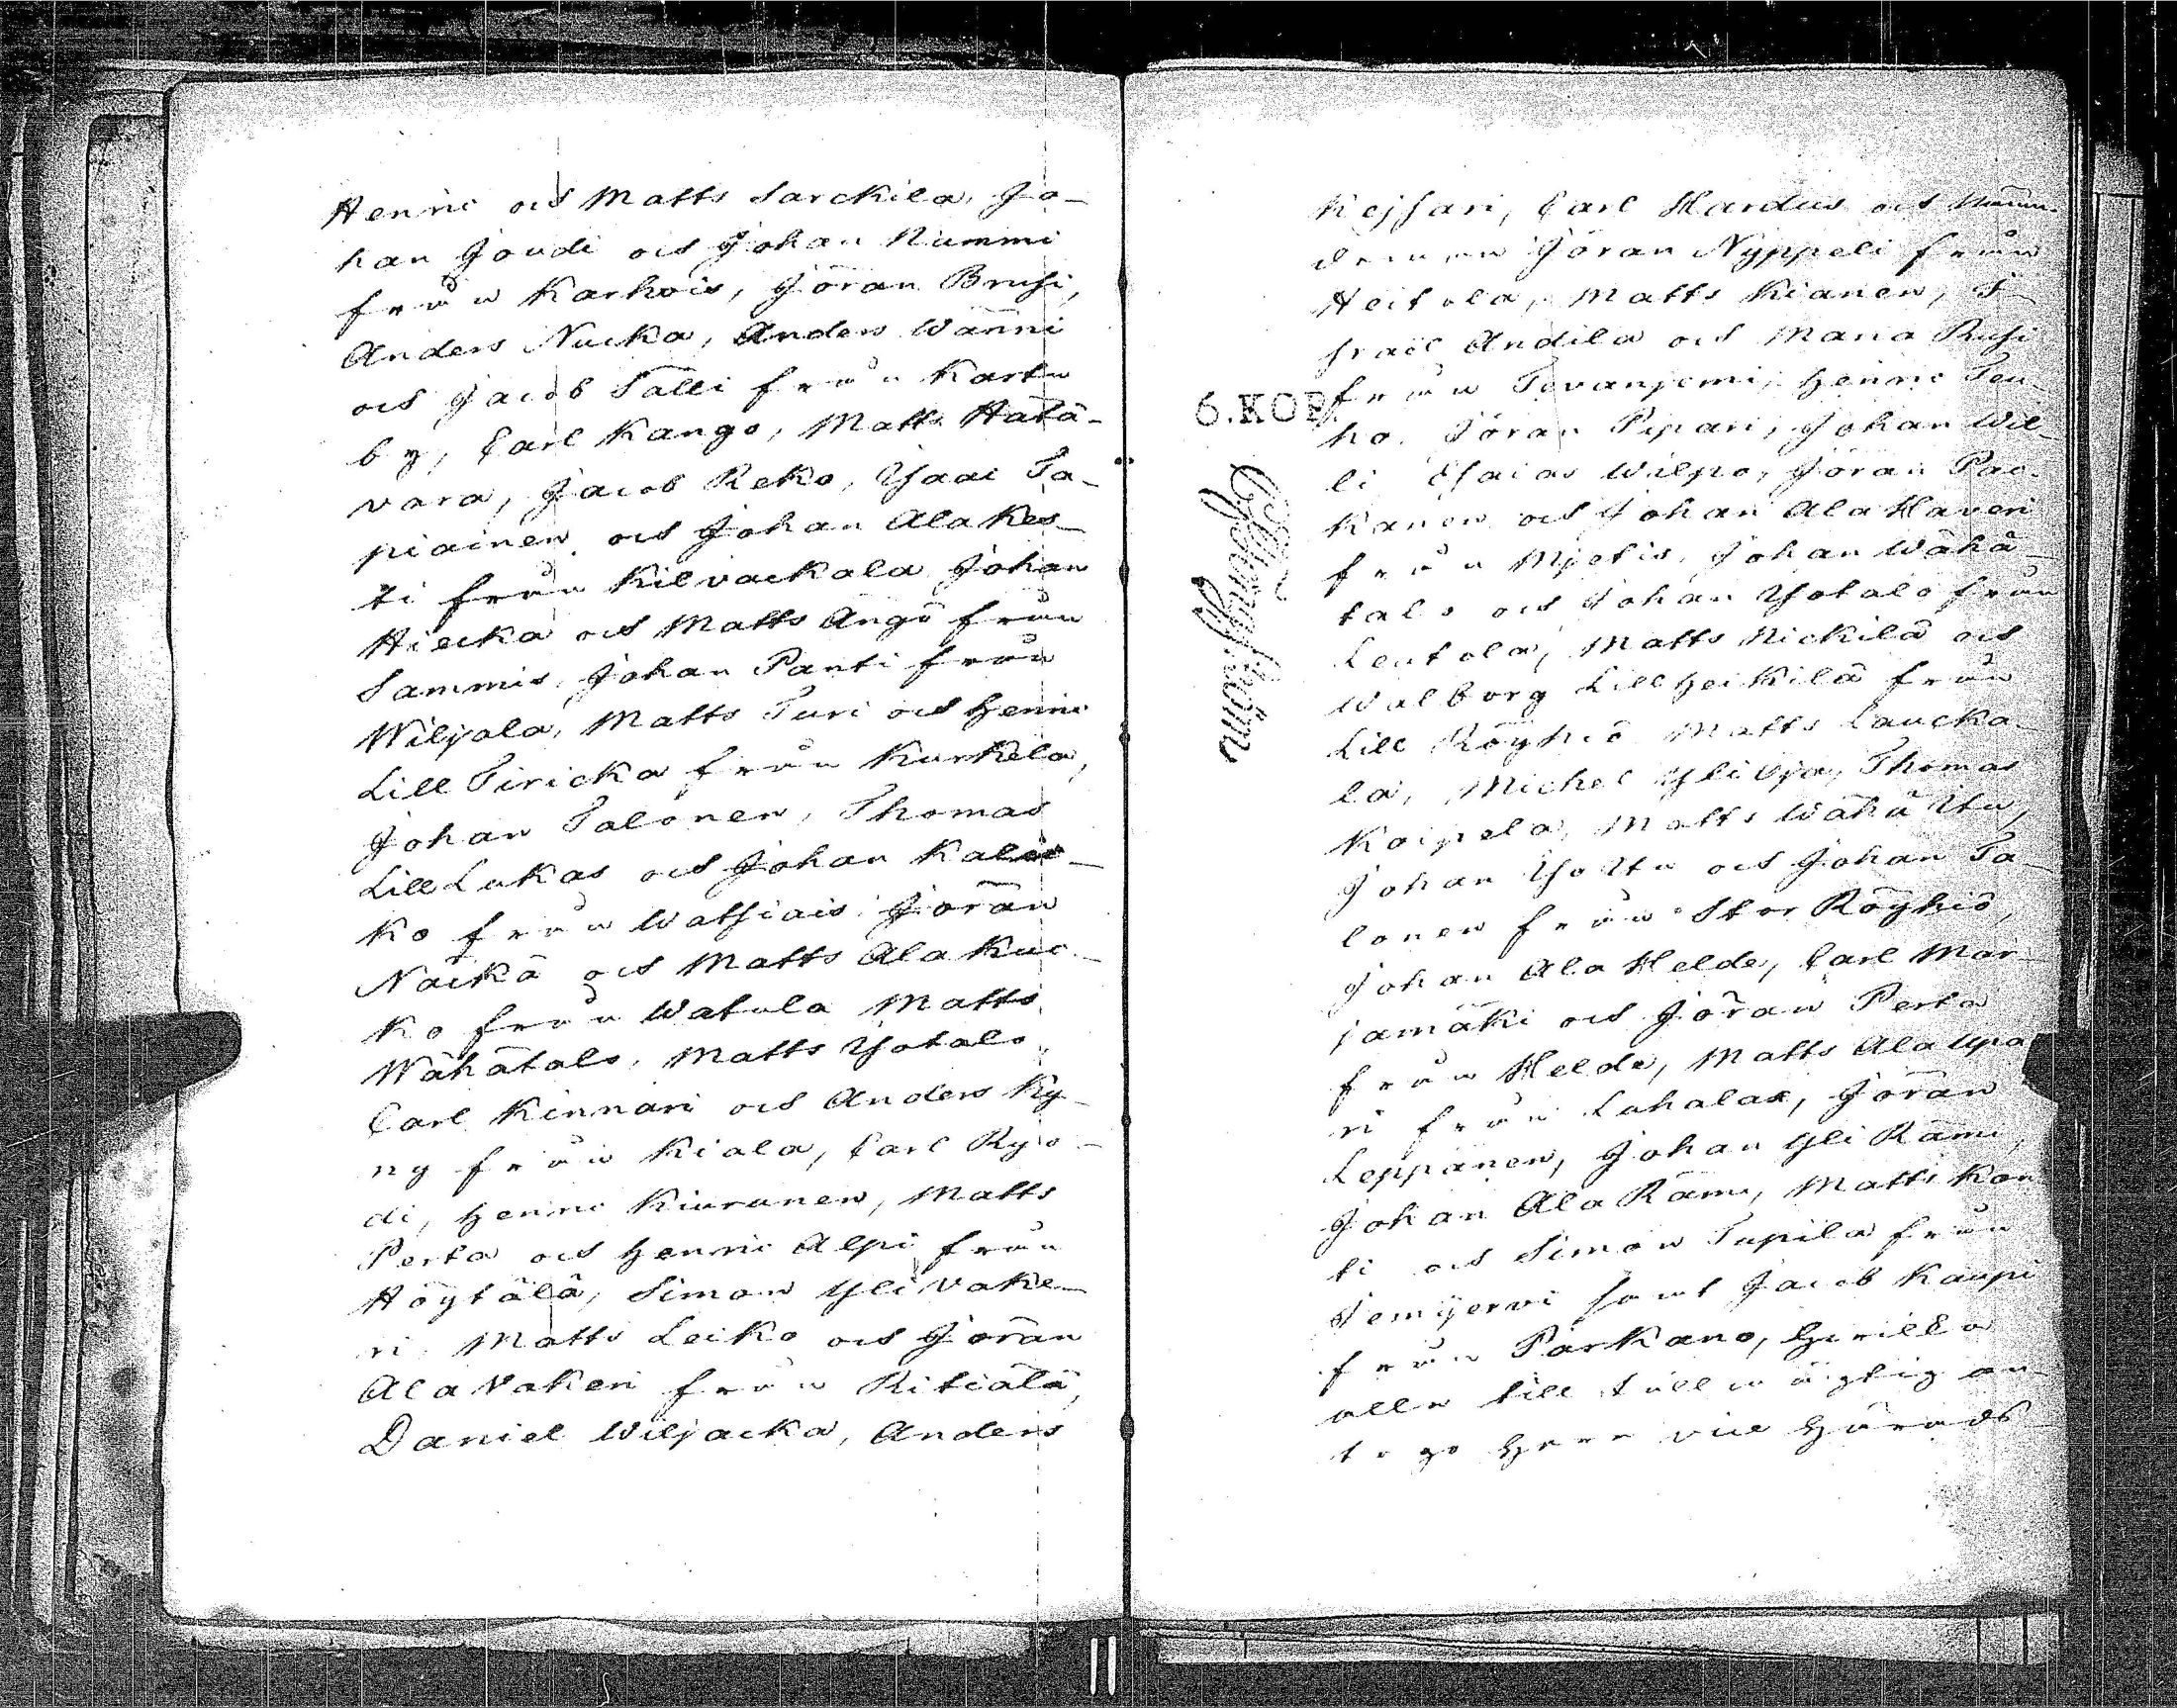 Henric och Matts Sarckila, Jo-
han Joudi och Johan Nummi
från Karhois, Jöran Brusi,
Anders Nucka, Anders Wänni
och Jacob Sälli från Kartu
by, Carl Kango, Matts Hatä-
vara, Jacob Reko, Ysaac Ta-
piainen och Johan Alakes-
ti från Kilvackala Johan
Hiecka och Matts Ängö från
Sammis, Johan Panti från
Wiljala, Matts Turi och Henric
Lill Tiricka från Kurkela,
Johan Talonen, Thomas
Lill Lukas och Johan
ko från Watsiais Jöran
Näckä och Matts Ala Kuc-
ko från Watula Matts
Wähätalo, Matts Ysotalo,
Carl Kinnari och Anders Ky-
ny från Kiala, Carl Ryö-
di, Henric Kiurunen, Matts
Perta och Henric Alpi från
Höytälä, Simon Yli Vake-
ri Matts Leiko och Jöran
Ala Vakeri från Ritiälä,
Daniel Wiljacka, Anders
Kejsari, Carl Hardus och
Jöran Nyppeli från
Heitola, Matts Kianen, I-
srael Andila och Maria Rusi
från Tevanjemi, Henric Teu-
6.KOP.
ho. Jöran Pipari, Johan Wil-
li Esaias Wilpo, Jöran Pac-
kanen och Johan Ala Haveri
från Mjetis, Johan Wähä-
talo och Johan Ysotalo från
Leutola, Matts Nickilä och
Walborg Lill Heikilä från
Lill Röyhiö Matts Laucka-
la, Michel Yli Oja, Thomas
Koipela, Matts Wähä Utu,
Johan Yso Utu och Johan Ta-
lonen från Stor Röyhiö,
Johan Ala Helde, Carl Mar-
jamäki och Jöran Perta
från Helde, Matts Ala Upa
ri från Luhalax, Jöran
Leppänen, Johan Yli Rämi,
Johan Ala Rämi, Matts Kon
ti och Simon Tupila från
Vemijervi samt Jacob Kaupi
från Parkano, hvilka
alla till fullmägtig an-
togo Herr vice Härads